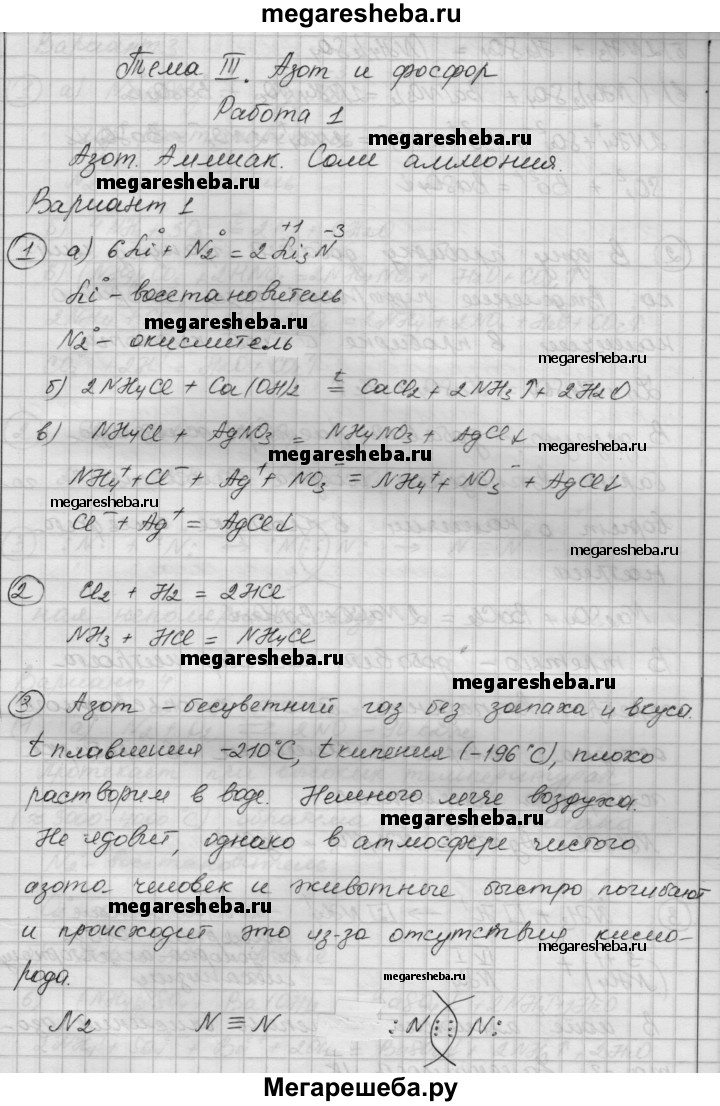 megaresheba.ru
Тема III. Азот и фосфор
Работа 1
megaresheba.ru
Азот. Аммиак. Соли аммония.
megaresheba.ru
Вариант 1
1 а) 6Li⁰ + N₂⁰ = 2Li₃⁺¹N⁻³
Li⁰ - восстановитель
megaresheba.ru
N₂⁰ - окислитель
megaresheba.ru
б) 2NH₄Cl + Ca(OH)₂ =ᵗ CaCl₂ + 2NH₃↑ + 2H₂O
в) NH₄Cl + AgNO₃ = NH₄NO₃ + AgCl↓
megaresheba.ru
megaresheba.ru
NH₄⁺ + Cl⁻ + Ag⁺ + NO₃⁻ = NH₄⁺ + NO₃⁻ + AgCl↓
megaresheba.ru
Cl⁻ + Ag⁺ = AgCl↓
megaresheba.ru
2 Cl₂ + H₂ = 2HCl
NH₃ + HCl = NH₄Cl
megaresheba.ru
megaresheba.ru
3 Азот - бесцветный газ без запаха и вкуса.
t плавления -210°C, t кипения (-196°C), плохо
растворим в воде. Немного легче воздуха.
megaresheba.ru
Не ядовит, однако в атмосфере чистого
азота человек и животные быстро погибают
megaresheba.ru
и происходит это из-за отсутствия кисло-
megaresheba.ru
рода.
megaresheba.ru
N₂ N ≡ N :N(⋮⋮)N:
megaresheba.ru
Мегарешеба.ру